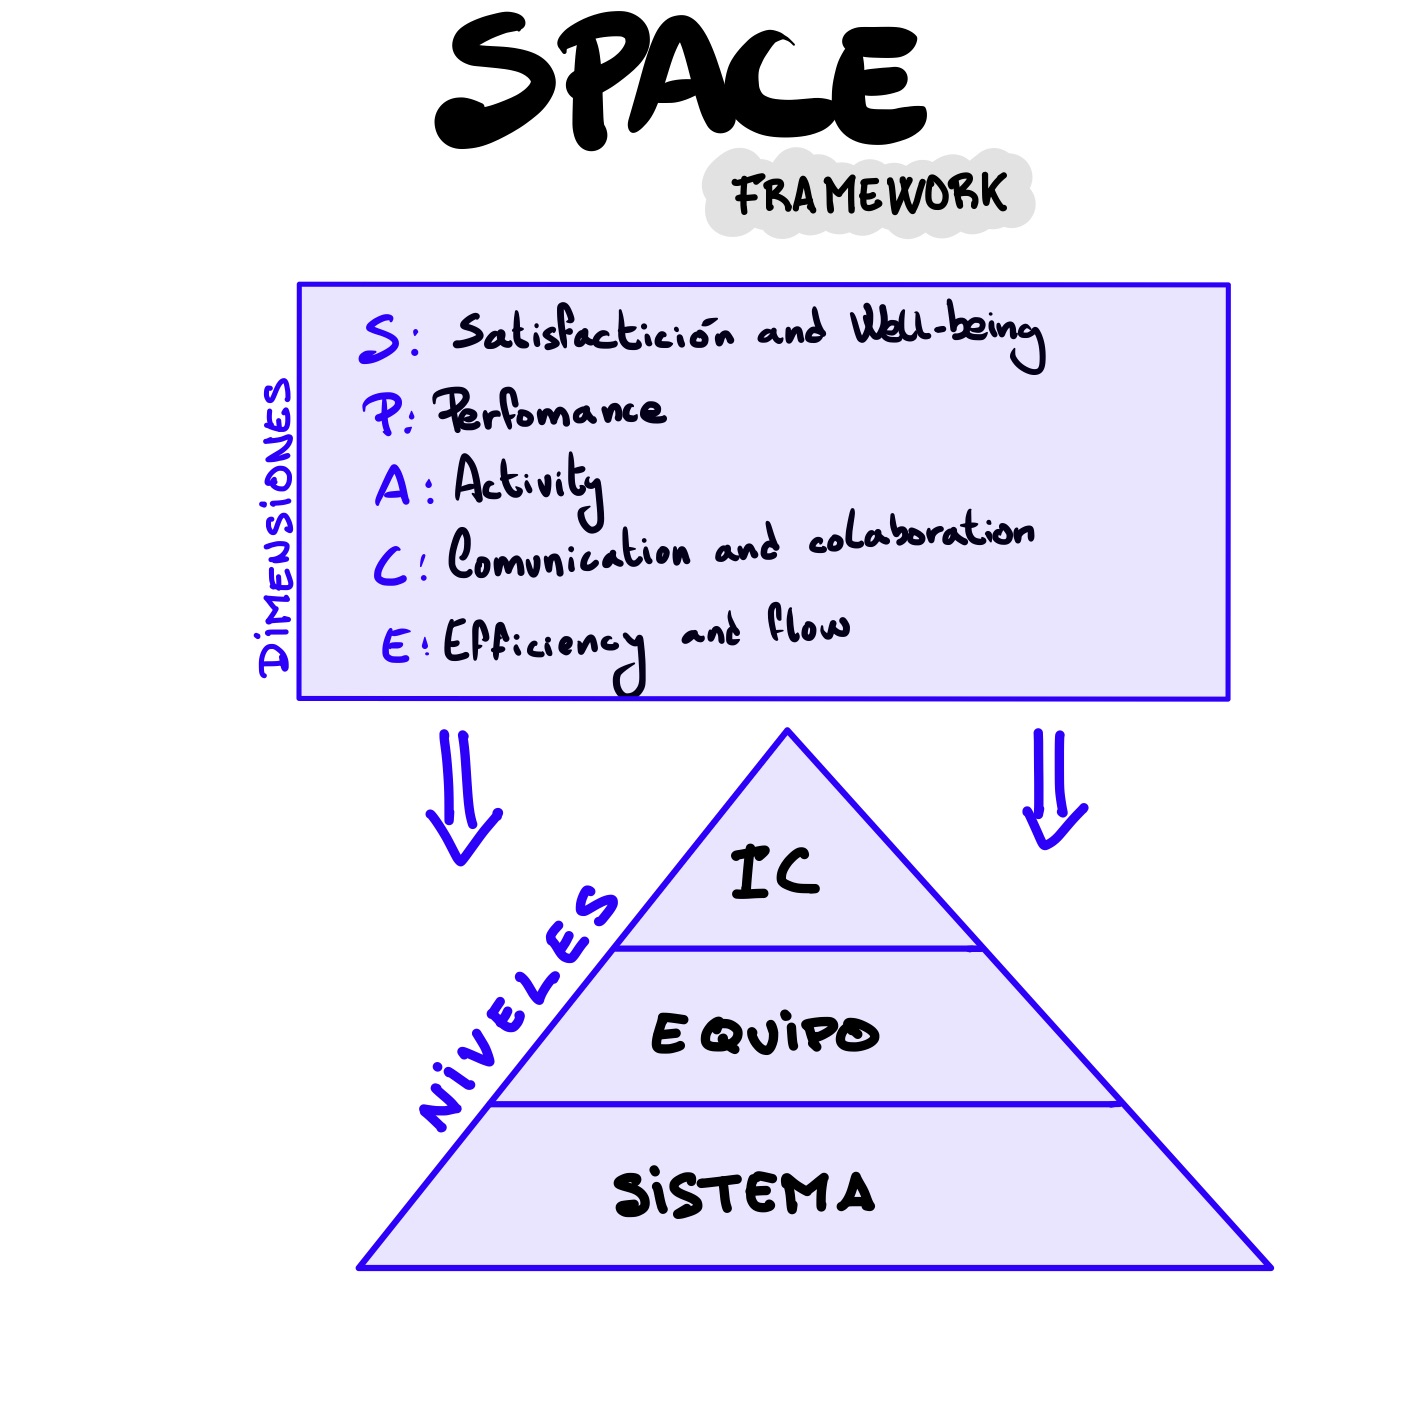 SPACE
FRAMEWORK
DIMENSIONES
S: Satisfactición and Well-being
P: Perfomance
A: Activity
C: Comunication and colaboration
E: Efficiency and flow
NIVELES
IC
EQUIPO
SISTEMA